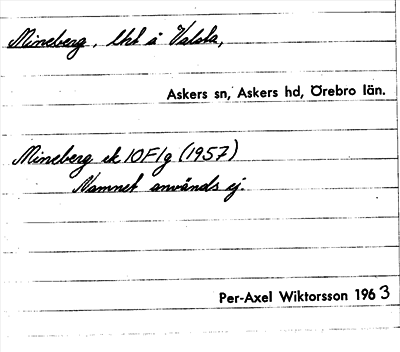 Mineberg, lht å Valsta,
Askers sn, Askers hd, Örebro län.
Mineberg ek 10F1g (1957)
Namnet används ej.
Per-Axel Wiktorsson 1963